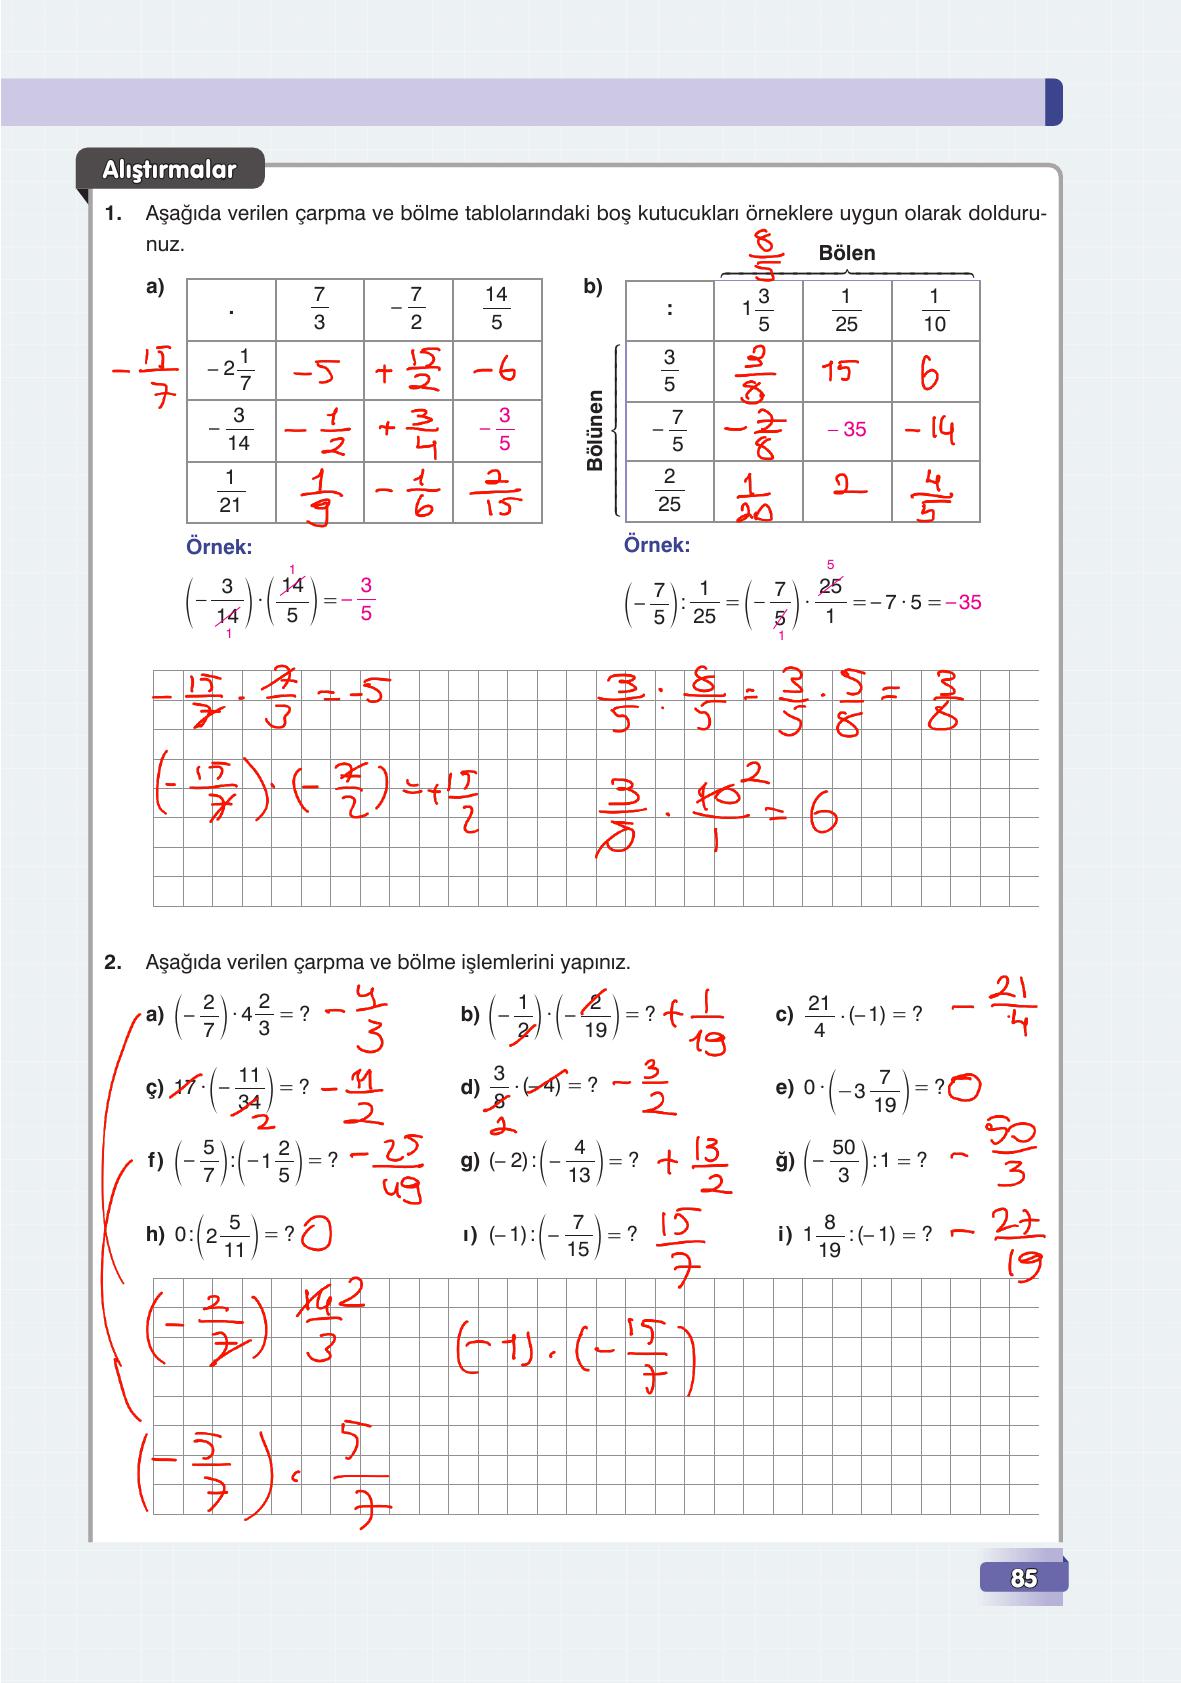 Alıştırmalar
1. Aşağıda verilen çarpma ve bölme tablolarındaki boş kutucukları örneklere uygun olarak dolduru-
nuz.
8/5
Bölen
a)
. 7/3 -7/2 14/5
-15/7
-2 1/7 -5 +15/2 -6
-3/14 -1/2 +3/4 -3/5
1/21 1/9 -1/6 2/15
b)
Bölünen
: 1 3/5 1/25 1/10
3/5 3/8 15 6
-7/5 -7/8 -35 -14
2/25 1/20 2 4/5
Örnek:
(-3/14) · (14/5) = -3/5
1
1
Örnek:
(-7/5) : 1/25 = (-7/5) · 25/1 = -7 · 5 = -35
5
1
-15/7 · 7/3 = -5
3/5 : 8/5 = 3/5 · 5/8 = 3/8
(-15/7) · (-7/2) = +15/2
3/5 · 10/1 2 = 6
2. Aşağıda verilen çarpma ve bölme işlemlerini yapınız.
a) (-2/7) · 4 2/3 = ? -4/3
b) (-1/2) · (-2/19) = ? +1/19
c) 21/4 · (-1) = ? -21/4
ç) 17 · (-11/34) = ? -11/2
2
d) 3/8 · (-4) = ? -3/2
2
e) 0 · (-3 7/19) = ? 0
f) (-5/7) : (-1 2/5) = ? -25/49
g) (-2) : (-4/13) = ? +13/2
ğ) (-50/3) : 1 = ? -50/3
h) 0 : (2 5/11) = ? 0
ı) (-1) : (-7/15) = ? 15/7
i) 1 8/19 : (-1) = ? -27/19
(-2/7) 14/3 2
(-1) · (-15/7)
(-5/7) · 5/7
85